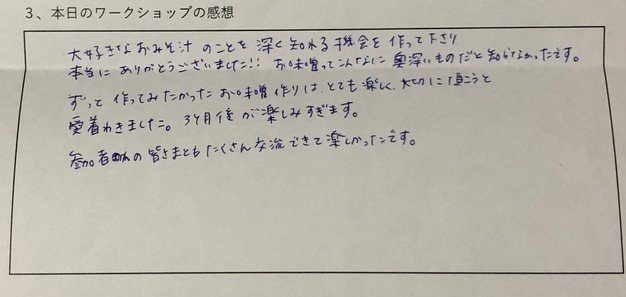 3、本日のワークショップの感想
大好きなおみそ汁 のことを 深く知れる機会を 作って下さり
本当に ありがとうございました!! お味噌ってこんなに 奥深いものだと知らなかったです。
ずっと 作ってみたかった お味噌作りは、とても 楽しく、大切に頂こうと
愛着わきました。 3ヶ月後が楽しみすぎます。
参加者の皆さまともたくさん交流できて楽しかったです。